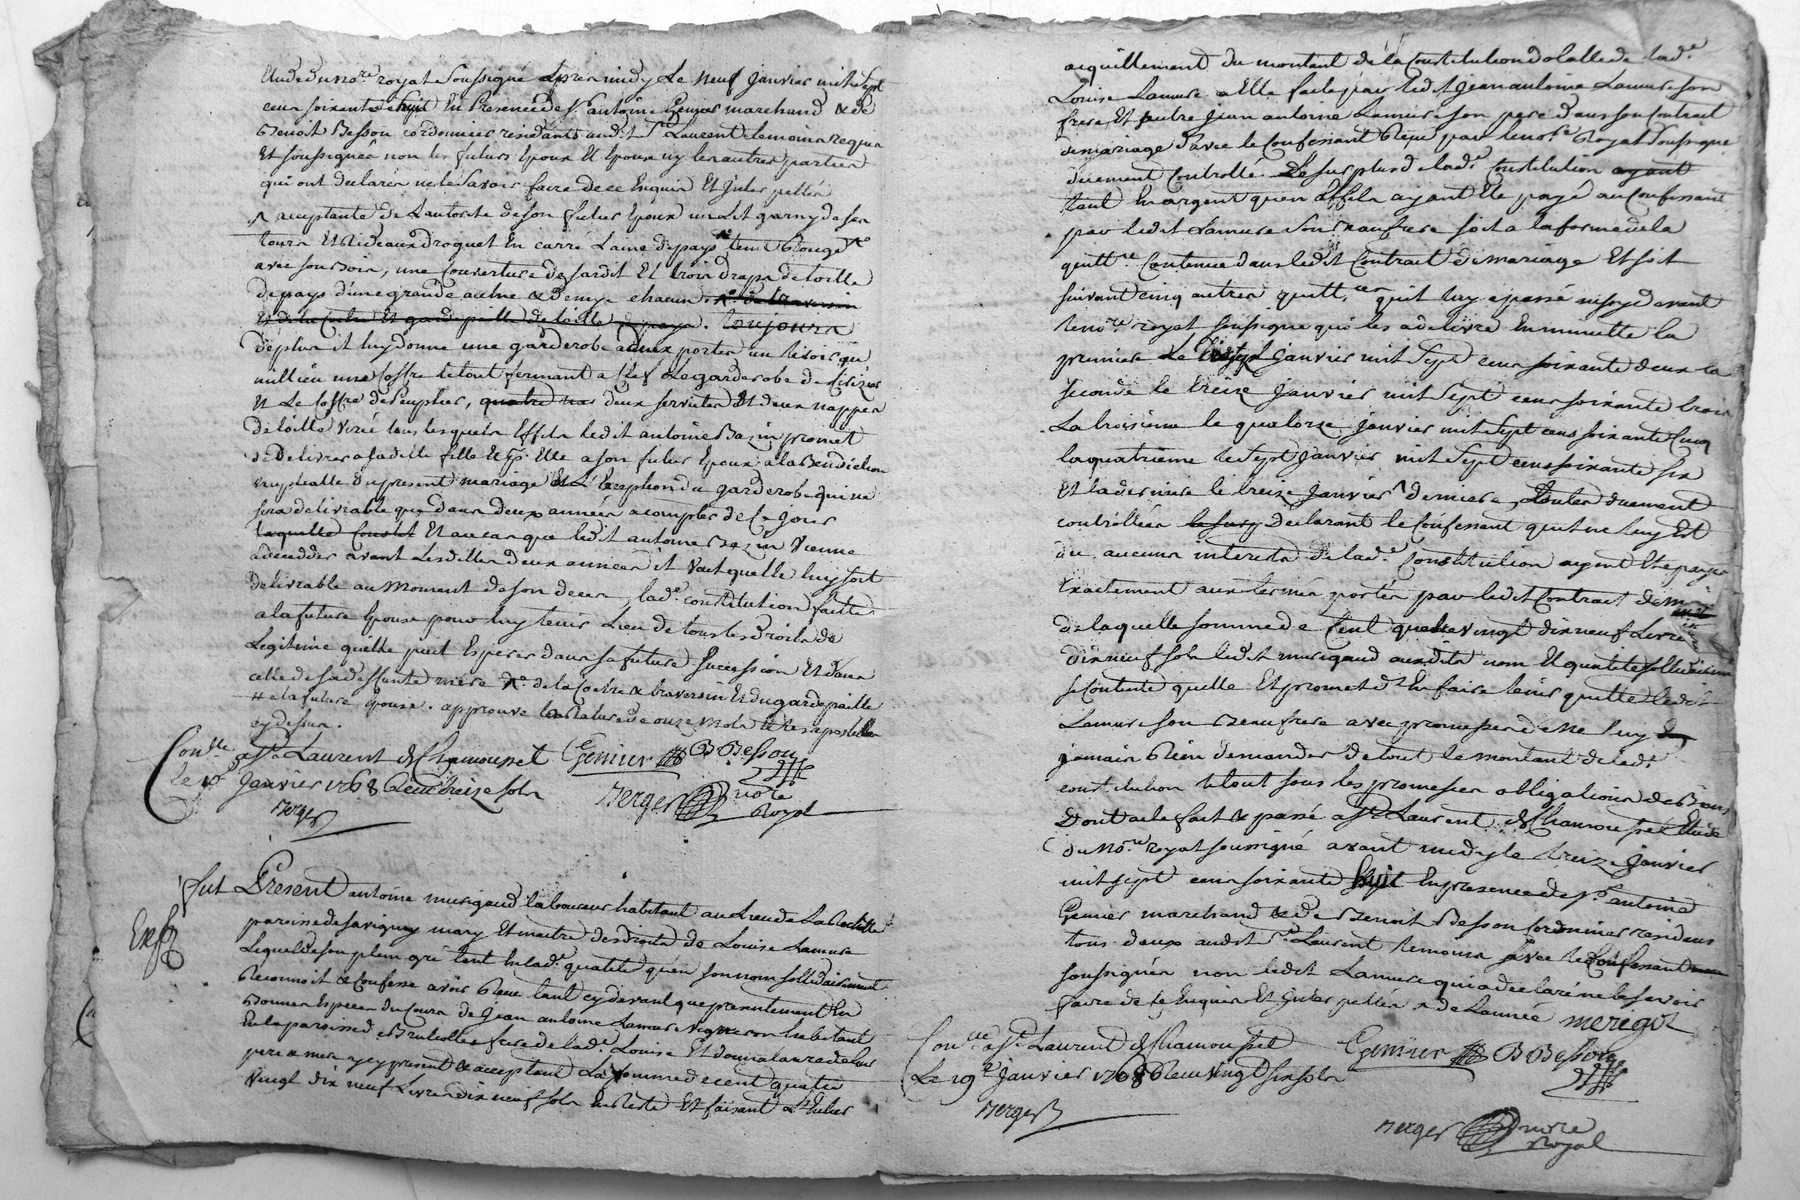 Etude du no.re royal soussigné apres midy le neuf janvier mil sept
cens soixante huit En Presence de s.r antoine Genier marchand & de
Benoit Besson cordonnier residants aud.t S.t Laurent temoins requis
Et soussignés non les futurs Epoux Et Epouse ny les autres parties
qui ont declarés ne le scavoir faire de ce Enquis Et Interpellés
acceptante de L'autorité de son futur Epoux un Lit garny de ses
tours Et Rideaux droguet En carré Laine de pays teint Rouge
avec son bois, une Couverture de sardit Et trois draps de toille
de pays d'une grande aulne & demye chacun
toujours
de plus il luy donne une garderobe a deux portes un tiroir au
millieu une Coffre le tout fermant a Clef Le garderobe de Cerizier
Et Le Coffre de Peuplier, deux serviettes Et deux nappes
de toille tous lesquels Effets ledit antoine Bazin promet
de delivrer a sad.te fille Et p.r Elle a son futur Epoux a la Benediction
nuptialle du present mariage a L'Exception du garderobe qui ne
sera delivrable que dans deux années a compter de Ce jour
Et au cas que ledit antoine Bazin Vienne
a deceder avant lesdittes deux années il Veut quelle luy soit
delivrable au Moment de son deces, lad.e constitution faitte
a la future Epouse pour luy tenir Lieu de tous les Droits de
Legitime quelle peut Esperer dans sa future succession Et dans
celle de sa deffunte mere de la Coetre & traversin Et du gardepaille
# a la future Epouse. approuve la Rature de onze mots Et les apostilles
cy dessus.
Con.lle a S.t Laurent de Chamousset Genier B Besson
Le 10.e Janvier 1768 Recu treize sols
Berger Berger no.re
Royal
fut Present antoine murigaud laboureur habitant au Lieu de La
Exp.é
paroisse de Savigny mary Et maitre des droits de Louise Lamure
Lequel de son plein gré tant En lad.e qualité qu'en son nom sollidairement
Reconnoit & Confesse avoir Receu tant cy devant que presentement En
Bonnes Especes du Cours de Jean antoine Lamure Vigneron habitant
En la paroisse de Brullolles frere de lad.e Louise Et donnataire de leur
pere a mere icy present & acceptant La somme de cent quatre
Vingt dix neuf Livres dix neuf sols En Reste Et faisant L'Entier
acquittement du montant de la Constitution dotalle de lad.e
Louise Lamure a Elle faite par ledit Jean antoine Lamure son
frere, Et autre Jean antoine Lamure son pere dans son Contrat
de mariage d'avec le Confessant Receu par le no.re Royal soussigné
duement Controllé. Le surplus de lad.e Constitution ayant
tant En argent qu'en Effets ayant Eté payé au Confessant
par ledit Lamure son Beaufrere soit a la forme de la
quitt.ce Contenue dans ledit Contrat de mariage Et soit
suivant cinq autres quitt.ces quil luy a passé
le no.re royal soussigné qui les a delivré En minutte la
premiere Le janvier mil sept cens soixante deux la
seconde le treize janvier mil sept cens soixante trois
La troisieme le quatorze janvier mil sept cens soixante Cinq
la quatrieme le sept janvier mil sept cens soixante six
Et la derniere le treize janvier ^ derniere, toutes duement
controllées Declarant le Confessant quil ne luy Est
du aucuns interets de lad.e Constitution ayant Eté payés
Exactement aux termes portés par ledit Contrat de
de laquelle somme de Cent quatre vingt dix neuf Livres
dix neuf sols ledit murigaud auxdits nom Et qualité sollidairement
se Contente quitte Et promet d'En faire tenir quitte ledit
Lamure son Beaufrere avec promesse de Ne luy
jamais Rien demander de tout le montant de lad.e
constitution le tout sous les promesses obligations de Biens
Dont acte fait & passé a S.t Laurent de Chamousset Etude
du No.re royal soussigné avant midy le treize janvier
mil sept cens soixante huit En presence de s.r antoine
Genier marchand & de Benoit Besson Cordonnier residens
tous deux audit S.t Laurent temoins avec le Confessant
soussignés non ledit Lamure qui a declaré ne le scavoir
faire de Ce Enquis Et Interpellés ^ de L'année merigot
Con.lle a S.t Laurent de Chamousset Genier B Besson
Le 19.e janvier 1768 Receu vingt six sols
Berger
Berger no.re
Royal